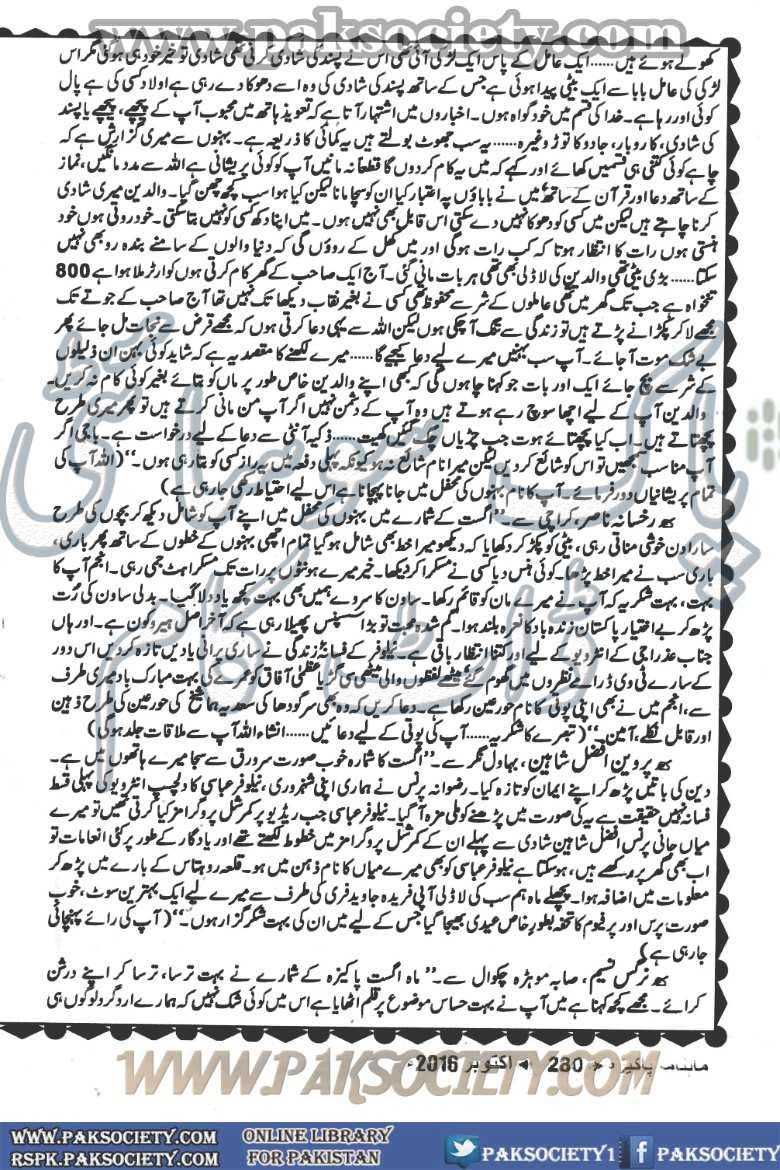 www.paksociety.com
کھولے ہوئے ہیں ...... ایک عامل کے پاس ایک لڑکی آئی تھی اس نے پسند کی شادی کرنی تھی شادی تو خیر خود ہی ہوئی مگر اس
لڑکی کی عامل بابا سے ایک بیٹی پیدا ہوئی ہے جس کے ساتھ پسند کی شادی کی وہ اسے دھوکا دے رہی ہے اولاد کسی کی ہے پال
کوئی اور رہا ہے۔ خدا کی قسم میں خود گواہ ہوں۔ اخباروں میں اشتہار آتا ہے کہ تعویذ ہاتھ میں محبوب آپ کے پیچھے، پیچھے یا پسند
کی شادی، کاروبار، جادو کا توڑ وغیرہ ...... یہ سب جھوٹ بولتے ہیں یہ کمائی کا ذریعہ ہے۔ بہنوں سے میری گزارش ہے کہ
چاہے کوئی کتنی ہی قسمیں کھائے اور کہے کہ میں یہ کام کر دوں گا قطعاً نہ مانیں آپ کو کوئی پریشانی ہے اللہ سے مدد مانگیں، نماز
کے ساتھ دعا اور قرآن کے ساتھ میں نے باباؤں پہ اعتبار کیا ان کو سچا مانا لیکن کیا ہوا سب کچھ چھن گیا۔ والدین میری شادی
کرنا چاہتے ہیں لیکن میں کسی کو دھوکا نہیں دے سکتی اس قابل بھی نہیں ہوں۔ میں اپنا دکھ کسی کو نہیں بتا سکتی۔ خود روتی ہوں خود
ہنستی ہوں رات کا انتظار ہوتا کہ کب رات ہوگی اور میں کھل کے روؤں گی کہ دنیا والوں کے سامنے بندہ رو بھی نہیں
سکتا ...... بڑی بیٹی تھی والدین کی لاڈلی بھی تھی ہر بات مانی گئی۔ آج ایک صاحب کے گھر کام کرتی ہوں کوارٹر ملا ہوا ہے 800
تنخواہ ہے جب تک گھر میں تھی عاملوں کے شر سے محفوظ تھی کسی نے بغیر نقاب دیکھا تک نہیں تھا آج صاحب کے جوتے تک
مجھے لا کر پکڑانے پڑتے ہیں تو زندگی سے تنگ آ چکی ہوں لیکن اللہ سے یہی دعا کرتی ہوں کہ مجھے قرض سے نجات مل جائے پھر
بے شک موت آ جائے۔ آپ سب بہنیں میرے لیے دعا کیجیے گا ...... میرے لکھنے کا مقصد یہ ہے کہ شاید کوئی بہن ان ذلیلوں
کے شر سے بچ جائے ایک اور بات جو کہنا چاہوں گی کہ کبھی اپنے والدین خاص طور پر ماں کو بتائے بغیر کوئی کام نہ کریں۔
والدین آپ کے لیے اچھا سوچ رہے ہوتے ہیں وہ آپ کے دشمن نہیں اگر آپ من مانی کرتے ہیں تو پھر میری طرح
پچھتاتے ہیں۔ اب کیا پچھتائے ہوت جب چڑیاں چگ گئیں کھیت ...... ذکیہ آنٹی سے دعا کے لیے درخواست ہے۔ باجی اگر
آپ مناسب سمجھیں تو اس کو شائع کر دیں لیکن میرا نام شائع نہ ہو کیونکہ پہلی دفعہ میں یہ راز کسی کو بتا رہی ہوں۔‘‘ (اللہ آپ کی
تمام پریشانیاں دور فرمائے۔ آپ کا نام بہنوں کی محفل میں جانا پہچانا ہے اس لیے احتیاط رکھی جا رہی ہے)
رخسانہ ناصر، کراچی سے۔ ’’اگست کے شمارے میں بہنوں کی محفل میں اپنے آپ کو شامل دیکھ کر بچوں کی طرح
سارا دن خوشی مناتی رہی، بیٹی کو پکڑ کر دکھایا کہ دیکھو میرا خط بھی شامل ہو گیا تمام اچھی بہنوں کے خطوں کے ساتھ پھر باری،
باری سب نے میرا خط پڑھا۔ کوئی ہنس دیا کسی نے مسکرا کر دیکھا۔ خیر میرے ہونٹوں پر رات تک مسکراہٹ جمی رہی۔ انجم آپ کا
بہت، بہت شکریہ کہ آپ نے میرے مان کو قائم رکھا۔ ساون کا سروے ہمیں بھی بہت کچھ یاد دلا گیا۔ بدلی ساون کی رُت
پڑھ کر بے اختیار پاکستان زندہ باد کا نعرہ بلند ہوا۔ گم شدہ محبت تو بڑا سسپنس پھیلا رہی ہے کہ آخر اصل ہیرو کون ہے۔ اور ہاں
جناب عذرا جی کے انٹرویو کے لیے اور کتنا انتظار باقی ہے۔ نیلوفر کے فسانۂ زندگی نے ساری پرانی یادیں تازہ کر دیں اس دور
کے سارے ٹی وی ڈرامے نظروں میں گھوم گئے میٹھے لفظوں والی میٹھی سی گڑیا عظمیٰ آفاق کو عمرے کی بہت مبارک باد میری طرف
سے، انجم میں نے بھی اپنی پوتی کا نام حورعین رکھا ہے۔ دعا کریں کہ وہ بھی سرگودھا کی سعدیہ ہما شیخ کی حورعین کی طرح ذہین
اور قابل نکلے، آمین۔‘‘ (تبصرے کا شکریہ ...... آپ کی پوتی کے لیے دعائیں ...... انشاء اللہ آپ سے ملاقات جلد ہوگی)
پروین افضل شاہین، بہاول نگر سے۔ ’’اگست کا شمارہ خوب صورت سرورق سے سجا میرے ہاتھوں میں ہے۔
دین کی باتیں پڑھ کر اپنے ایمان کو تازہ کیا۔ رضوانہ پرنس نے ہماری اپنی شنہوری، نیلوفر عباسی کا دلچسپ انٹرویو کی پہلی قسط
فسانہ نہیں حقیقت ہے یہ کی صورت میں پڑھنے کو ملی مزہ آ گیا۔ نیلوفر عباسی جب ریڈیو پر کمرشل پروگرامز کیا کرتی تھیں تو میرے
میاں جانی پرنس افضل شاہین شادی سے پہلے ان کے کمرشل پروگرامز میں خطوط لکھتے تھے اور یادگار کے طور پر کئی انعامات تو
اب بھی گھر پر رکھے ہیں، ہوسکتا ہے نیلوفر عباسی کو بھی میرے میاں کا نام ذہن میں ہو۔ قلعہ روہتاس کے بارے میں پڑھ کر
معلومات میں اضافہ ہوا۔ پچھلے ماہ ہم سب کی لاڈلی آپی فریدہ جاوید فری کی طرف سے میرے لیے ایک بہترین سوٹ، خوب
صورت پرس اور پرفیوم کا تحفہ بطورِ خاص عیدی بھیجا گیا جس کے لیے میں ان کی بہت شکر گزار ہوں۔‘‘ (آپ کی رائے پہنچائی
جا رہی ہے)
نرگس نسیم، صابہ موہڑہ چکوال سے۔ ’’ماہ اگست پاکیزہ کے شمارے نے بہت ترسا، ترسا کر اپنے درشن
کرائے۔ مجھے کچھ کہنا ہے میں آپ نے بہت حساس موضوع پر قلم اٹھایا ہے اس میں کوئی شک نہیں کہ ہمارے اردگرد لوگوں ہی
پاک سوسائٹی ڈاٹ کام
ماہنامہ پاکیزہ 280 اکتوبر 2016ء
WWW.PAKSOCIETY.COM
WWW.PAKSOCIETY.COM ONLINE LIBRARY PAKSOCIETY1 PAKSOCIETY
RSPK.PAKSOCIETY.COM FOR PAKISTAN